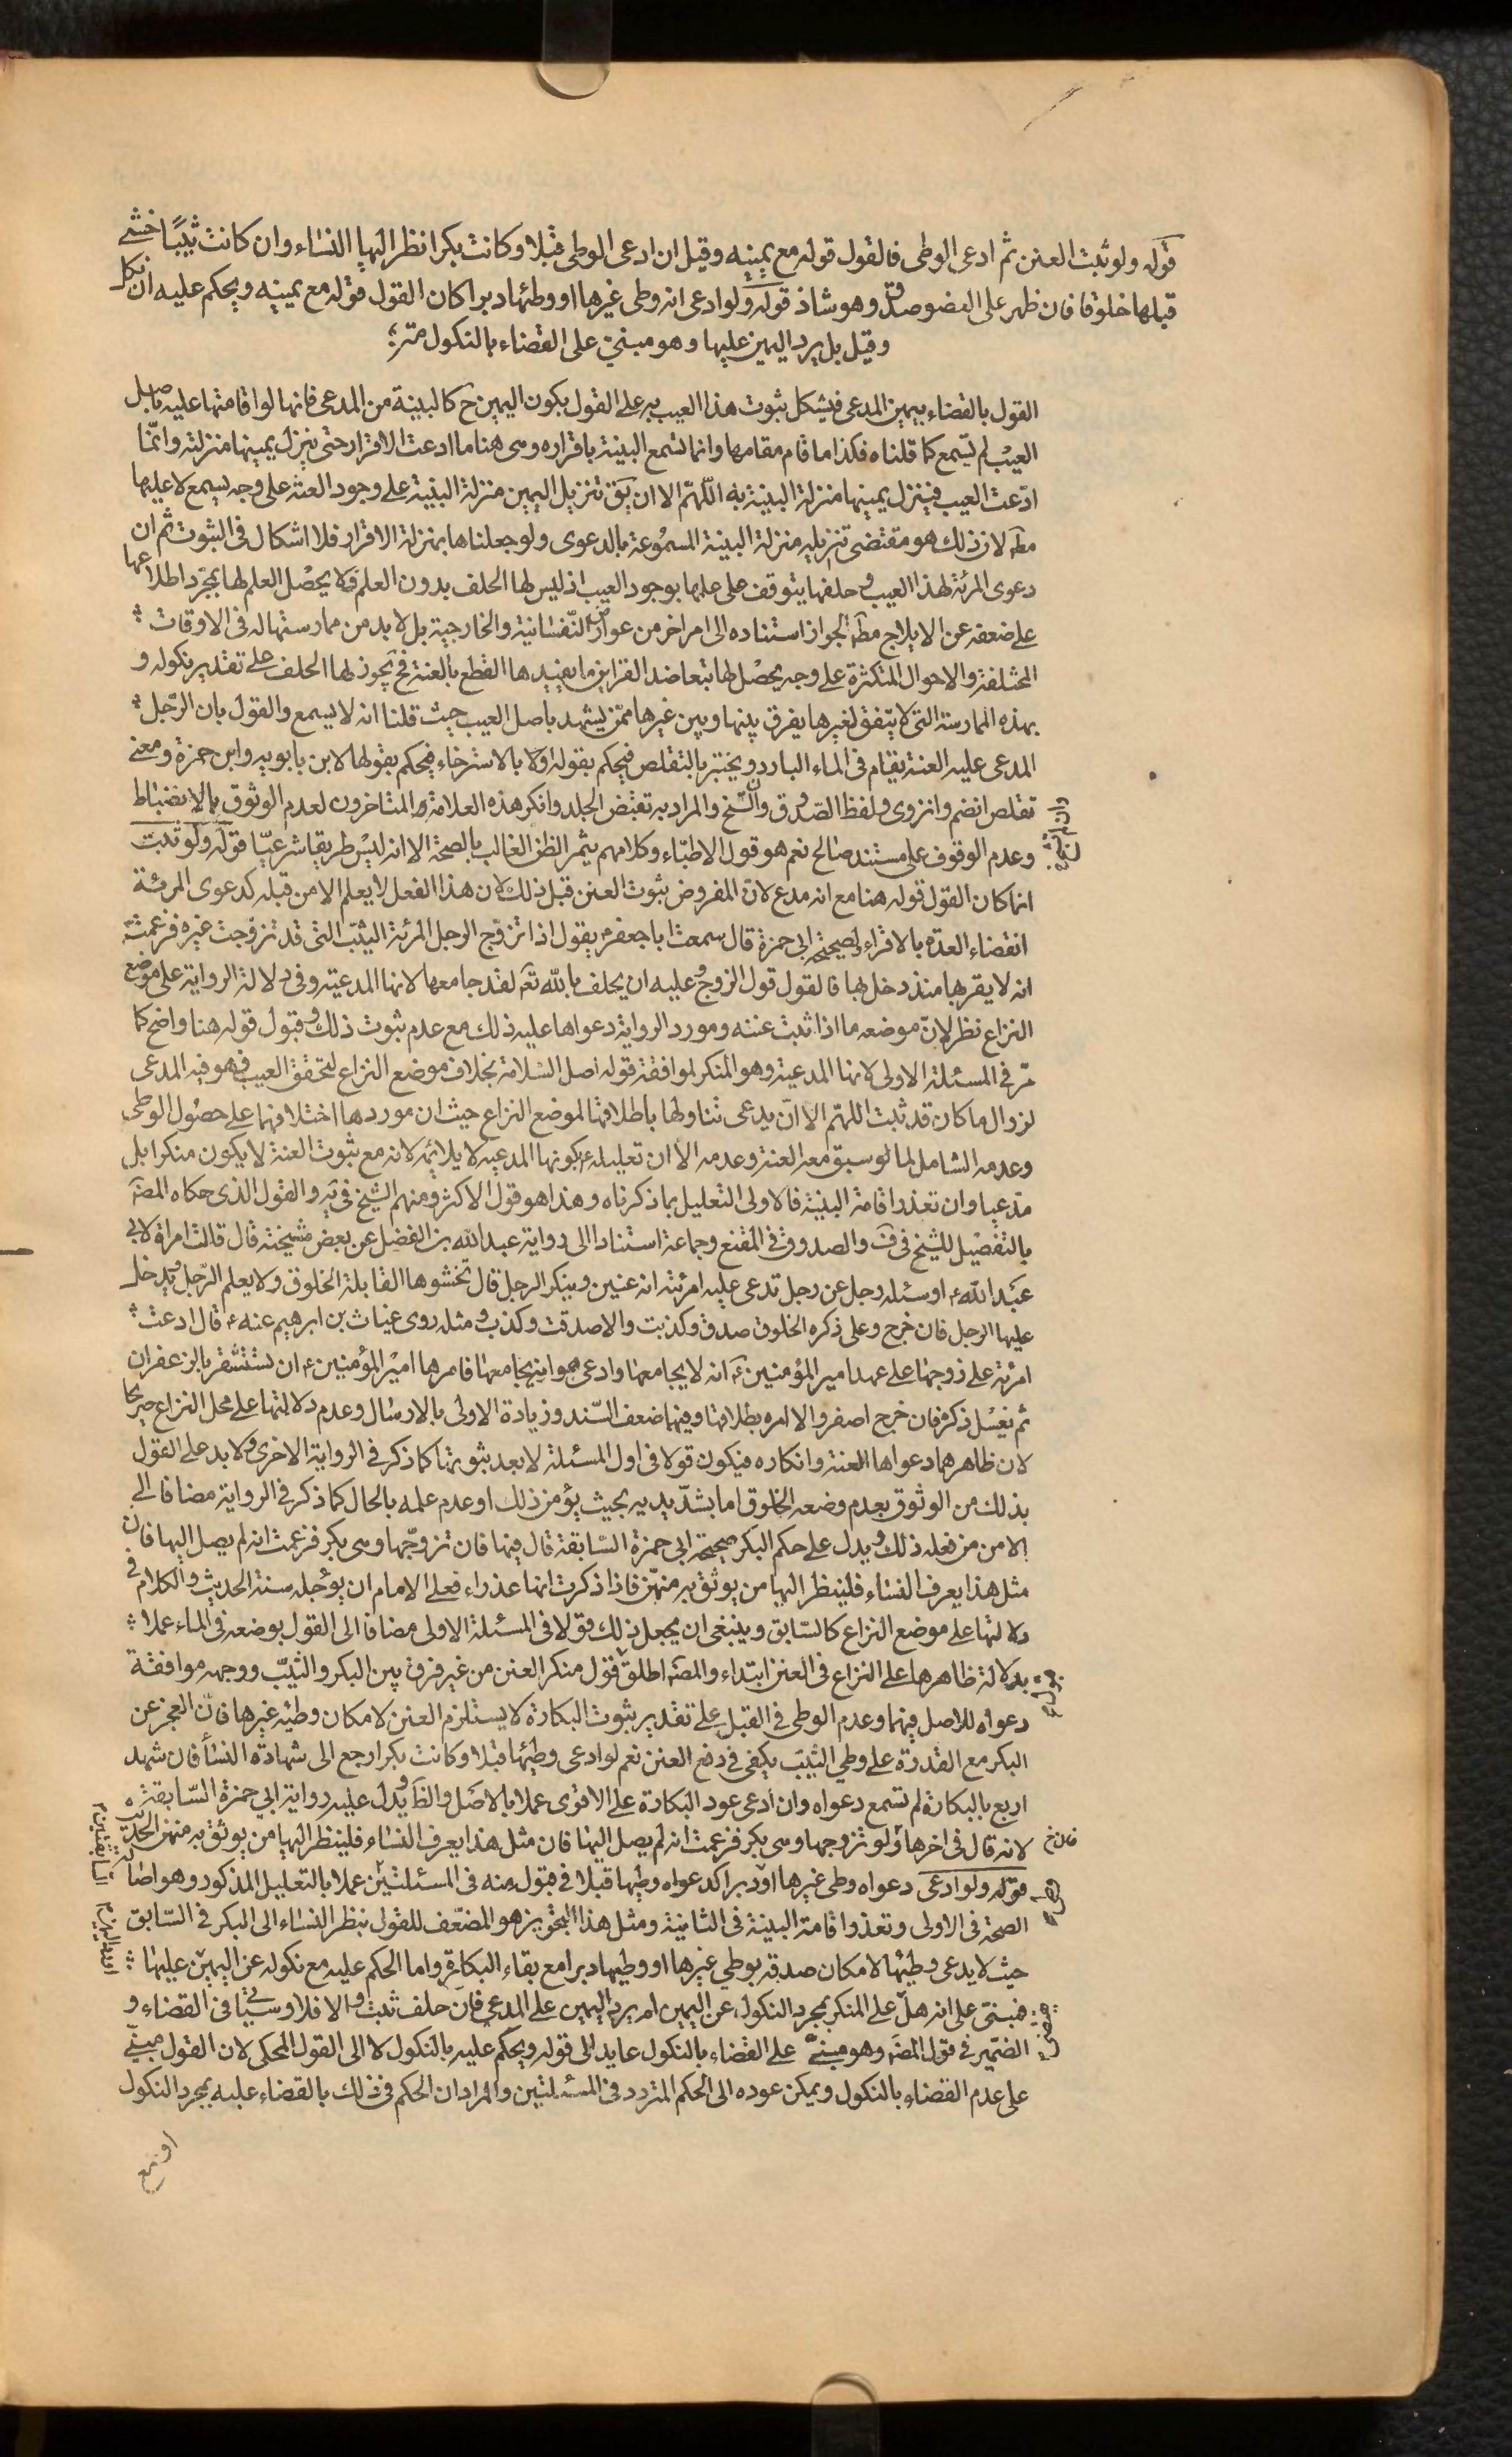 قوله ولو ثبت العنن ثم ادعى الوطى فالقول قوله مع يمينه وقيل ان ادعى الوطى قبلا وكانت بكرا نظر اليها النساء وان كانت ثيبًا حشى
قبلها خلوقا فان ظهر على العضو صدق وهو شاذ قوله ولو ادعى انه وطى غيرها او وطئها دبرا كان القول قوله مع يمينه ويحكم عليه ان نكل
وقيل بل يرد اليمين عليها وهو مبنىّ على القضاء بالنكول
القول بالقضاء بيمين المدعى فيشكل بثوت هذا العيب به على القول بكون اليمين ح كالبينة من المدعى فانها لو اقامتها عليه باصل
العيب لم تسمع كما قلناه فكذا ما قام مقامها وانما تسمع البينة باقراره وهى هنا ما ادعت الاقرار حتى ينزل يمينها منزلته وانّما
ادّعت العيب فينزل يمينها منزلة البينة به اللّهمّ الا ان يق تنزيل اليمين منزلة البينة على وجود العنة على وجه يسمع لا عليها
مط لان ذلك هو مقتضى تنزيله منزلة البينة المسموعة بالدعوى ولو جعلناها بمنزلة الاقرار فلا اشكال فى الثبوت ثم ان
دعوى المرئة لهذا العيب وحلفها يتوقف على علمها بوجود العيب اذ ليس لها الحلف بدون العلم ولا يحصل العلم لها بمجرد اطلاعها
على ضعفه عن الايلاج مط لجواز استناده الى امر اخر من عوارضه النّفسانية والخارجية بل لابد من ممارستها له فى الاوقات
المختلفة والاحوال المتكثرة على وجه يحصل لها بتعاضد القراين ما يفيدها القطع بالعنة فح يجوز لها الحلف على تقدير نكوله و
بهذه الممارسة التى لا يتّفق لغيرها يفرق بينها وبين غيرها ممّن يشهد باصل العيب حيث قلنا انه لا يسمع والقول بان الرّجل
المدعى عليه العنة يقام فى الماء البارد ويختبر بالتقلص فيحكم بقوله اولا بالاسترخاء فيحكم بقولها لابن بابويه وابن حمزة ومعنى
تقلص انضم وانزوى ولفظ الصّدوق وان تشنج والمراد به تقبّض الجلد وانكر هذه العلامة المتاخرون لعدم الوثوق بالانضباط
وعدم الوقوف على مستند صالح نعم هو قول الاطباء وكلامهم يثمر الظن الغالب بالصحة الا انه ليس طريقا شرعيّا قوله ولو ثبت
انما كان القول قوله هنا مع انه مدع لانّ المفروض بثوت العنن قبل ذلك لان هذا الفعل لا يعلم الا من قبله كدعوى المرئة
انقضاء العدة بالاقراء لصحيحة ابى حمزة قال سمعت ابا جعفر م يقول اذا تزوّج الرجل المرئة الثيّب التى قد تزوجت غيره فزعمت
انه لا يقربها منذ دخل بها فالقول قول الزوج وعليه ان يحلف بالله تع لقد جامعها لانها المدعية وفى دلالة الرواية على موضع
النزاع نظر لانّ موضعه ما اذا ثبت عننه ومورد الرواية دعواها عليه ذلك مع عدم بثوت ذلك وقبول قوله هنا واضح كما
مرّ فى المسئلة الاولى لانها المدعية وهو المنكر لموافقة قوله اصل السّلامة بخلاف موضع النزاع لتحقق العيب فهو فيه المدعى
لزوال ما كان قد ثبت اللهمّ الا ان يدعى تناولها باطلاقها لموضع النزاع حيث ان موردها اختلافهما على حصول الوطى
وعدمه الشامل لما لو سبق معه العنة وعدمه الا ان تعليله بكونها المدعيه لا يلائمه لانه مع بثوت العنة لا يكون منكرا بل
مدّعيا وان تعذر اقامة البينة فالاولى التعليل بما ذكرناه وهذا هو قول الاكثر ومنهم الشيخ فى يه والقول الذى حكاه المص
بالتفصيل للشيخ فى ف والصدوق فى المقنع وجماعة استنادا الى رواية عبد الله بن الفضل عن بعض مشيخته قال قالت امراة لابى
عبد الله ع او سئله رجل عن رجل تدعى عليه امرئته انه عنين وينكر الرجل قال تحشوها القابلة الخلوق ولا يعلم الرّجل ويدخل
عليها الرجل فان خرج وعلى ذكره الخلوق صدق وكذبت والا صدقت وكذب ومثله روى غياث بن ابرهيم عنه ع قال ادعت
امرئة على زوجها على عهد امير المؤمنين ع انه لا يجامعها وادعى هو انه يجامعها فامرها امير المؤمنين ع ان تستثفر بالزعفران
ثم يغسل ذكره فان خرج اصفر والا امره بطلاقها وفيهما ضعف السّند وزيادة الاولى بالارسال وعدم دلالتهما على محل النزاع صريحا
لان ظاهرهما دعواها العنة وانكاره فيكون قولا فى اول المسئلة لا بعد بثوتها كما ذكر فى الرواية الاخرى ولابد على القول
بذلك من الوثوق بعدم وضعه الخلوق اما بشدّ يديه بحيث يؤمن ذلك او عدم علمه بالحال كما ذكر فى الرواية مضافا الى
الامن من فعله ذلك ويدل على حكم البكر صحيحة ابى حمزة السّابقة قال فيها فان تزوّجها وهى بكر فزعمت انه لم يصل اليها فان
مثل هذا يعرف النساء فلينظر اليها من يوثق به منهنّ فاذا ذكرت انها عذراء فعلى الامام ان يؤجله سنة الحديث والكلام فى
دلالتها على موضع النزاع كالسّابق وينبغى ان يجعل ذلك قولا فى المسئلة الاولى مضافا الى القول بوضعه فى الماء عملا
بدلالة ظاهرها على النزاع فى العنن ابتداء والمص اطلق قول منكر العنن من غير فرق بين البكر والثيّب ووجهه موافقة
دعواه للاصل فيهما وعدم الوطى فى القبل على تقدير بثوت البكارة لا يستلزم العنن لامكان وطيه غيرها فانّ العجز عن
البكر مع القدرة على وطى الثيّب يكفى فى دفع العنن نعم لو ادعى وطيها قبلا وكانت بكرا رجع الى شهادة النسأ فان شهد
اربع بالبكارة لم تسمع دعواه وان ادعى عود البكارة على الاقوى عملا بالاصل والظ ويدل عليه رواية ابى حمزة السّابقة
لانه قال فى اخرها ولو تزوجها وهى بكر فزعمت انه لم يصل اليها فان مثل هذا يعرف النساء فلينظر اليها من يوثق به منهن الحديث
قوله ولو ادعى دعواه وطى غيرها او دبرا كدعواه وطيها قبلا فى قبول منه فى المسئلتين عملا بالتعليل المذكور وهو اصالة
الصحة فى الاولى وتعذر اقامة البينة فى الثانية ومثل هذا التجويز هو المضعّف للقول بنظر النساء الى البكر فى السّابق
حيث لا يدعى وطيها لامكان صدقه بوطى غيرها او وطيها دبرا مع بقاء البكارة واما الحكم عليه مع نكوله عن اليمين عليها
فمبنى على انه هل على المنكر بمجرد النكول عن اليمين ام يرد اليمين على المدعى فان حلف ثبت والا فلا وسيأتى فى القضاء و
الضّمير فى قول المص وهو مبنىّ على القضاء بالنكول عايد الى قوله ويحكم عليه بالنكول لا الى القول المحكى لان القول مبنى
على عدم القضاء بالنكول ويمكن عوده الى الحكم المتردد فى المسئلتين والمراد ان الحكم فى ذلك بالقضاء عليه بمجرد النكول
او مع